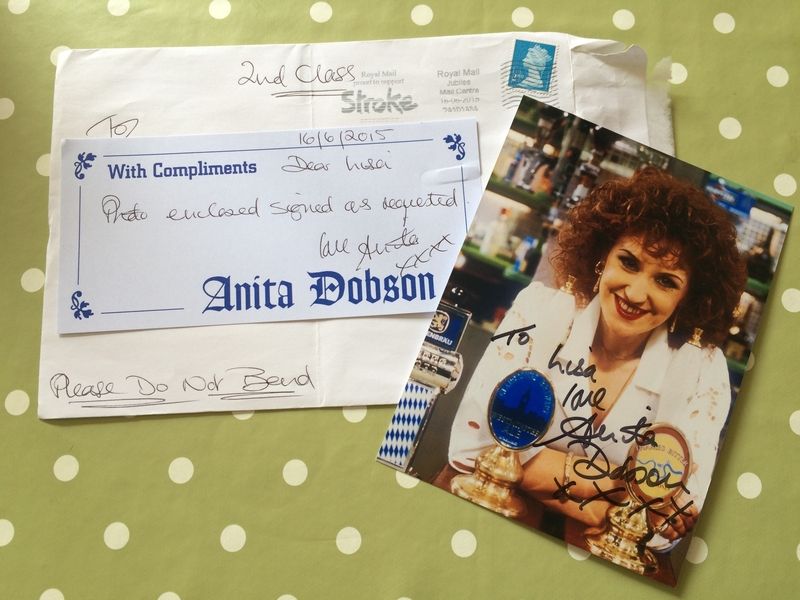 2nd Class
Royal Mail
proud to support
Stroke
Royal Mail
Jubilee
Mail Centre
16-06-2015
To
16/6/2015
With Compliments
Dear Lisa
Photo enclosed signed as requested
love Anita
xxxx
Anita Dobson
Please Do Not Bend
To Lisa
love
Anita
Dobson
xxxx